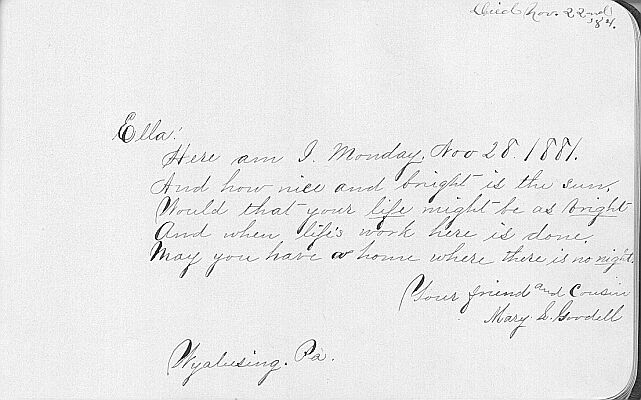 (Died Nov. 22nd
'84.
Ella!
Here am I. Monday, Nov 28. 1881.
And how nice and bright is the sun,
Would that your life might be as bright
And when life's work here is done.
May you have a home where there is no night.
Your friend and Cousin
Mary L. Goodell
Wyalusing. Pa.